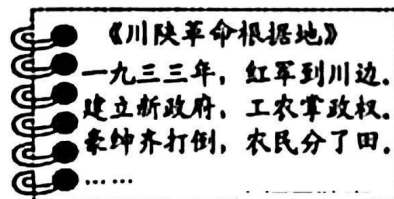 《川陕革命根据地》
一九三三年，红军到川边。
建立新政府，工农掌政权。
豪绅齐打倒，农民分了田。
……